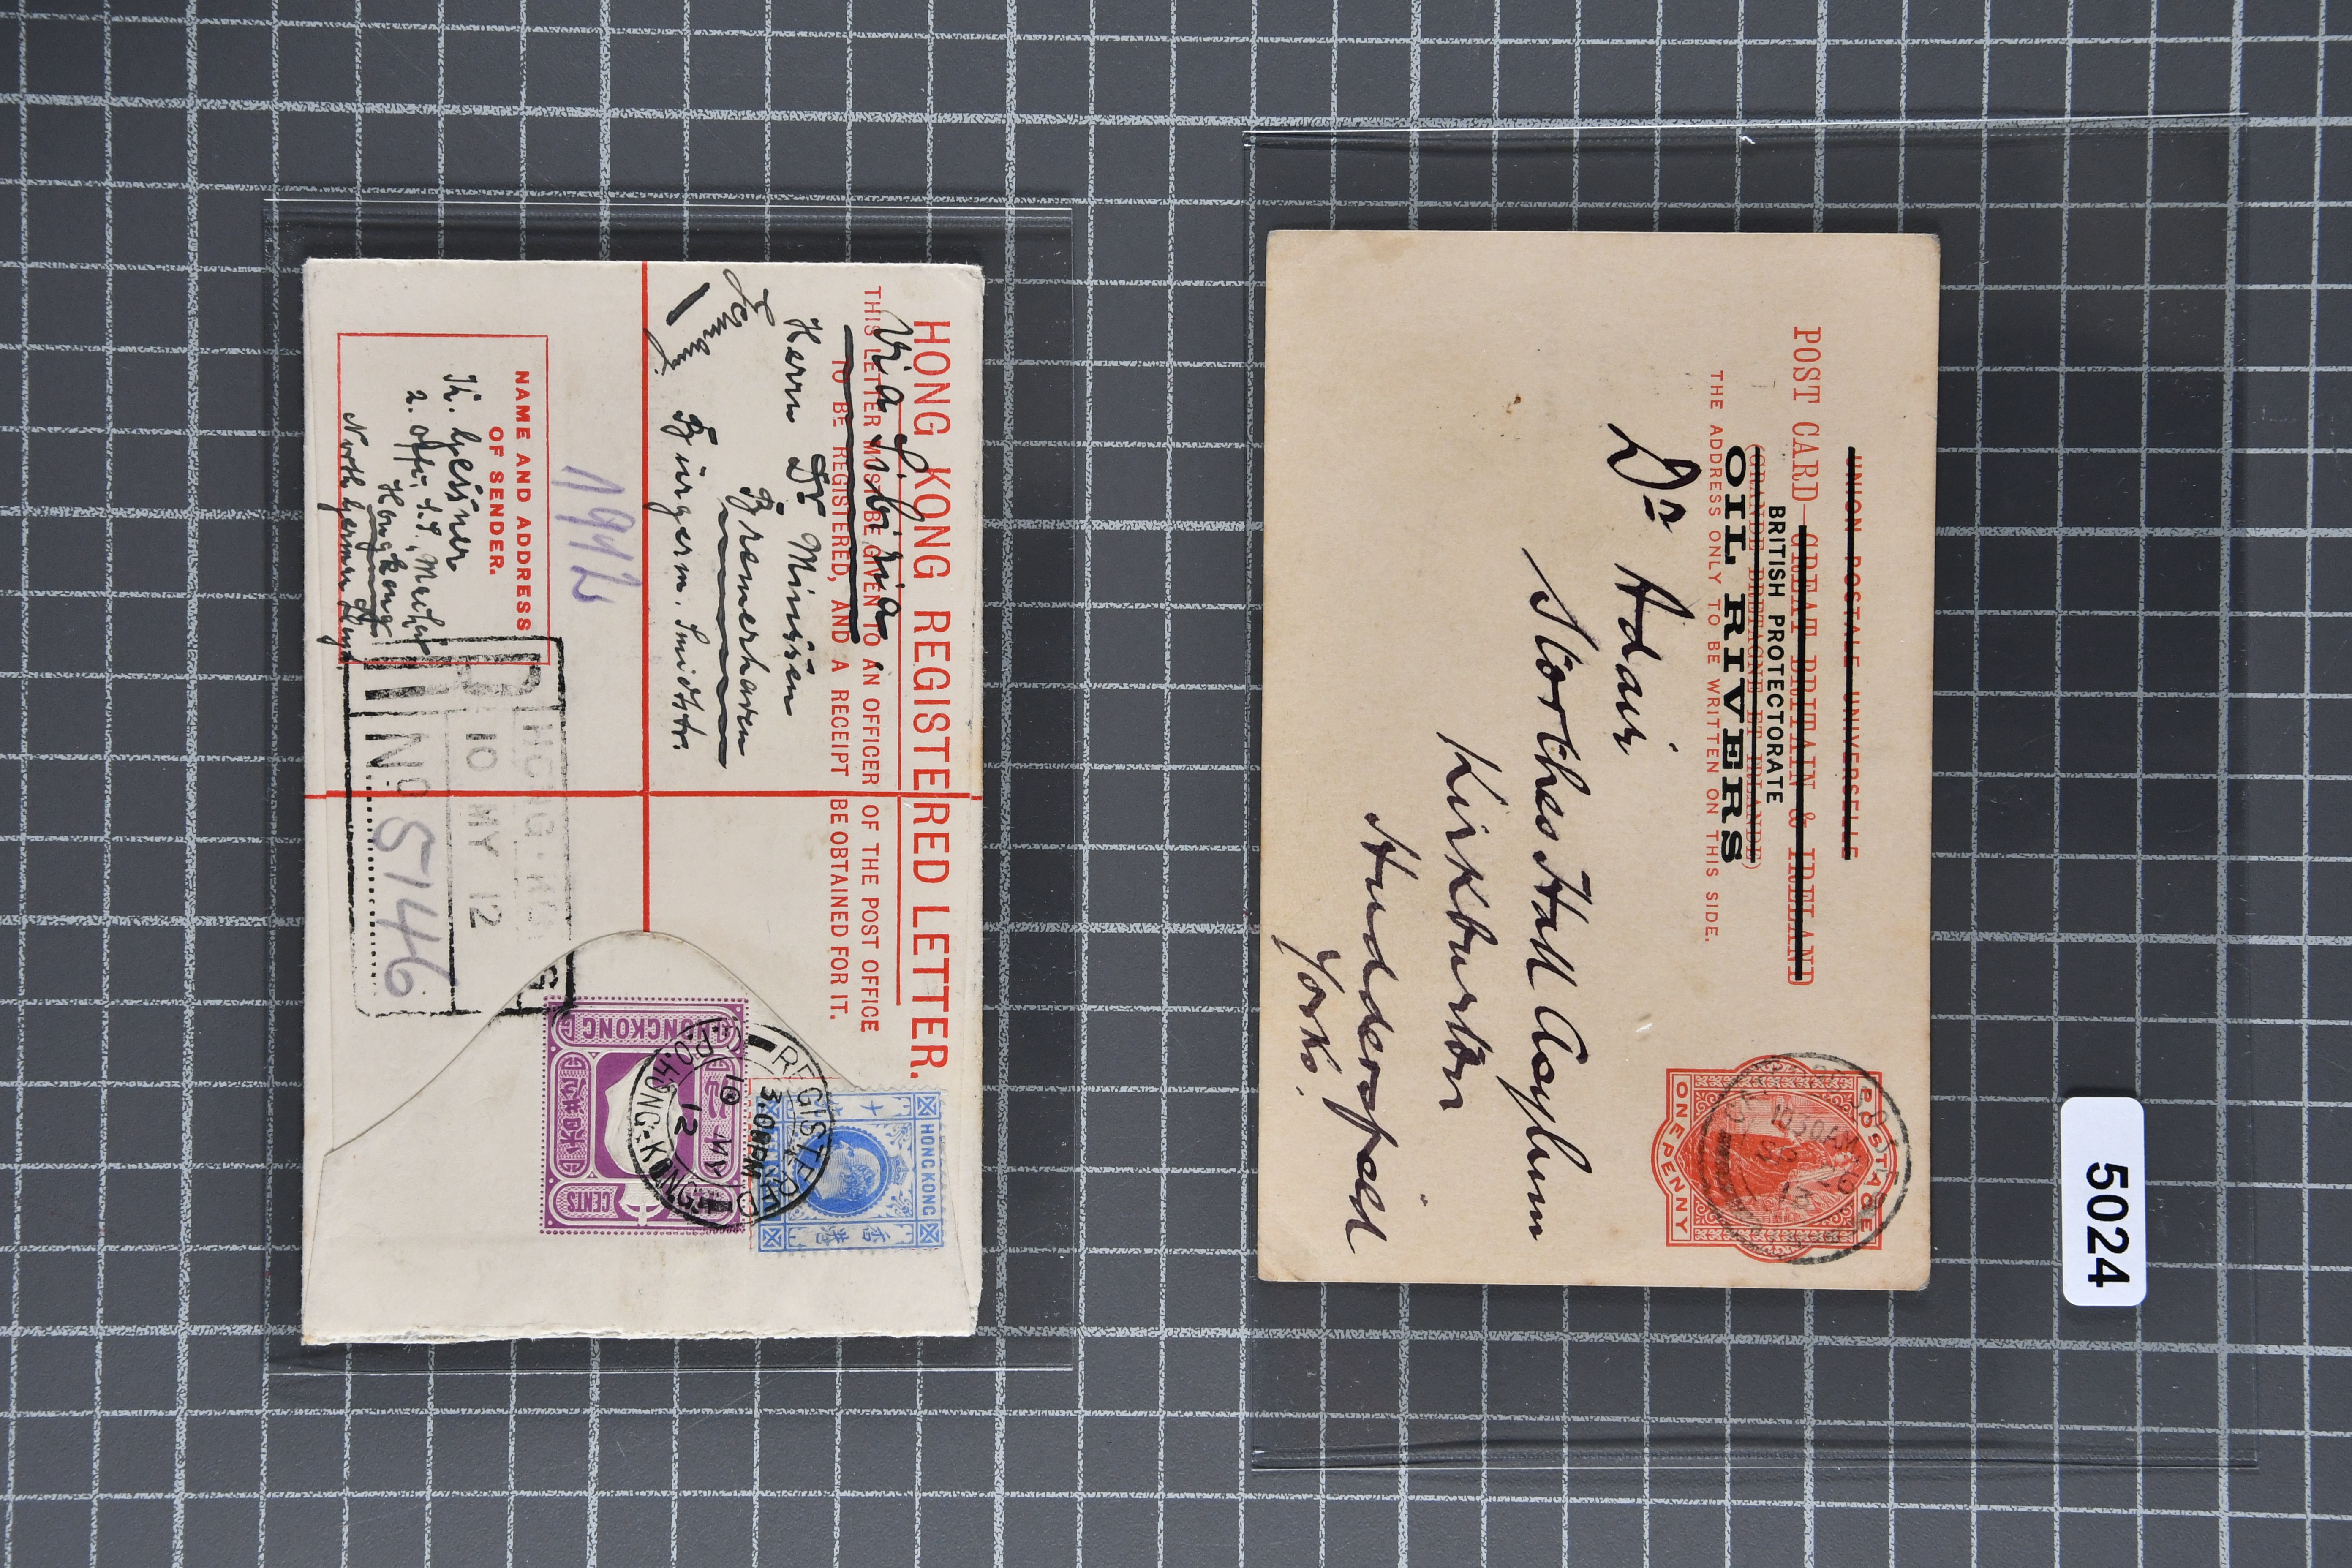 HONG KONG REGISTERED LETTER.
THIS LETTER MUST BE GIVEN TO AN OFFICER OF THE POST OFFICE
TO BE REGISTERED, AND A RECEIPT BE OBTAINED FOR IT.
Via Sibiria
Herrn Dr Minssen
Bremerhaven
Bürgerm. Smidtstr.
NAME AND ADDRESS
OF SENDER.
2. Offz. S.S.
Hongkong
North German Lloyd
HONG-KONG
10 MY 12
No 5146
HONGKONG
CENTS
HONG KONG
香港
REGISTERED
3.00PM
10 MY
12
G.P.O. HONG-KONG
UNION POSTALE UNIVERSELLE
POST CARD-GREAT BRITAIN & IRELAND
BRITISH PROTECTORATE
(GRANDE BRETAGNE ET IRLANDE)
OIL RIVERS
THE ADDRESS ONLY TO BE WRITTEN ON THIS SIDE.
POSTAGE
ONE PENNY
Dr Adair
Storthes Hall Asylum
Kirkburton
Huddersfield
Yorks.
5024